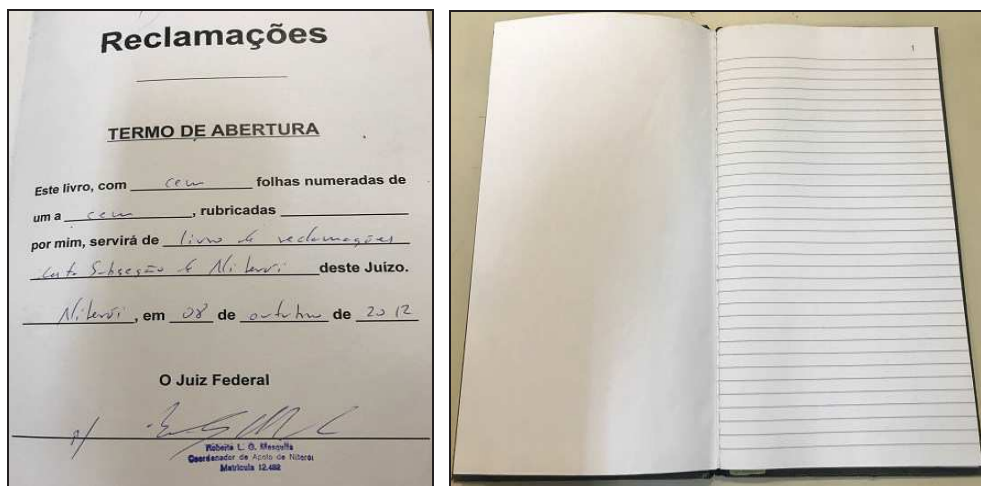 Reclamações
TERMO DE ABERTURA
Este livro, com cem folhas numeradas de
um a cem, rubricadas
por mim, servirá de livro de reclamações
Subseção de Niterói deste Juizo.
Niterói, em 08 de outubro de 2012
O Juiz Federal
p/
L. G. Mesquita
Coordenador de Apoio de Niterói
Matrícula 12.482
1